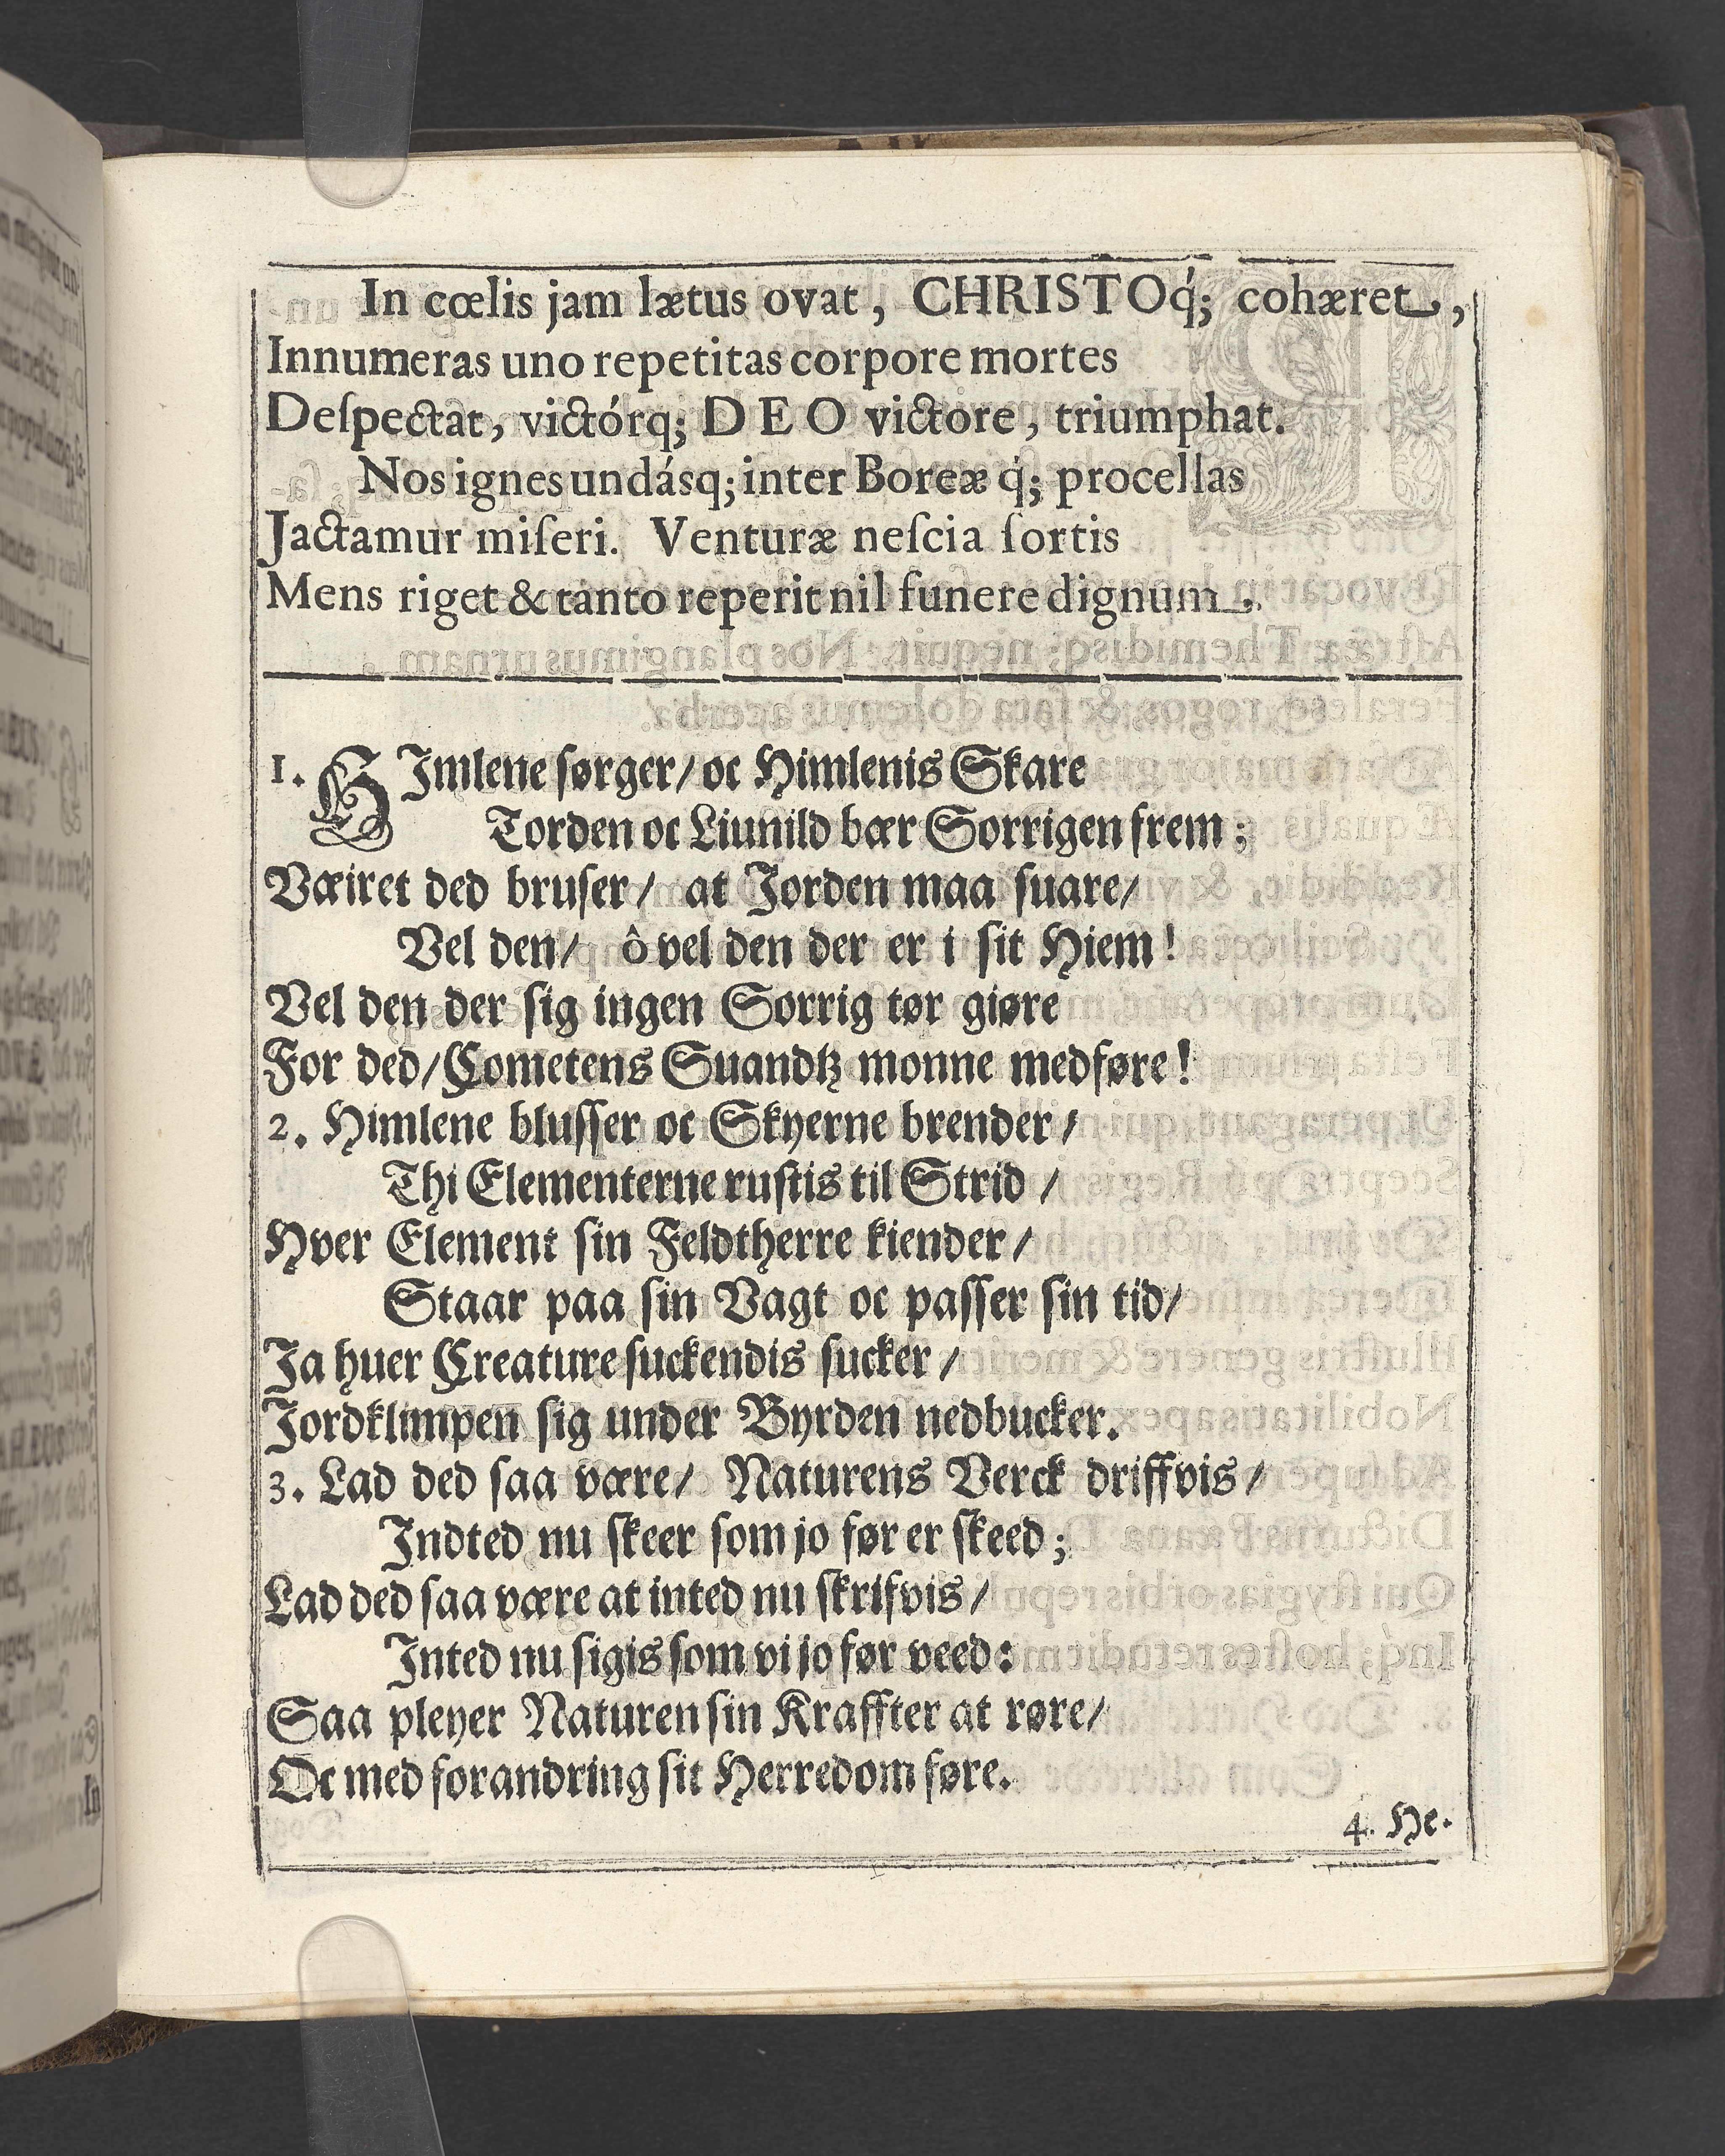 In cœlis jam lætus ovat, CHRISTOq́; cohæret,
Innumeras uno repetitas corpore mortes
Deſpectat, victórq; DEO victore, triumphat.
Nos ignes undásq; inter Boreæ q́; procellas
Jactamur miſeri. Venturæ neſcia ſortis
Mens riget & tanto reperit nil funere dignum.
1. HImlene ſørger/ oc Himlenis Skare
Torden oc Liunild bær Sorrigen frem;
Væiret ded bruſer/ at Jorden maa ſuare/
Vel den/ ô vel den der er i ſit Hiem!
Vel den der ſig ingen Sorrig tør giøre
For ded/ Cometens Suandtz monne medføre!
2. Himlene bluſſer oc Skyerne brender/
Thi Elementerne ruſtis til Strid/
Hver Element ſin Feldtherre kiender/
Staar paa ſin Vagt oc paſſer ſin tid/
Ja huer Creature ſuckendis ſucker/
Jordklimpen ſig under Byrden nedbucker.
3. Lad ded ſaa være/ Naturens Verck driffvis/
Indted nu ſkeer ſom jo før er ſkeed;
Lad ded ſaa være at inted nu ſkrifvis/
Inted nu ſigis ſom vi jo før veed:
Saa pleyer Naturen ſin Kraffter at røre/
Oc med forandring ſit Herredom føre.
4. He-